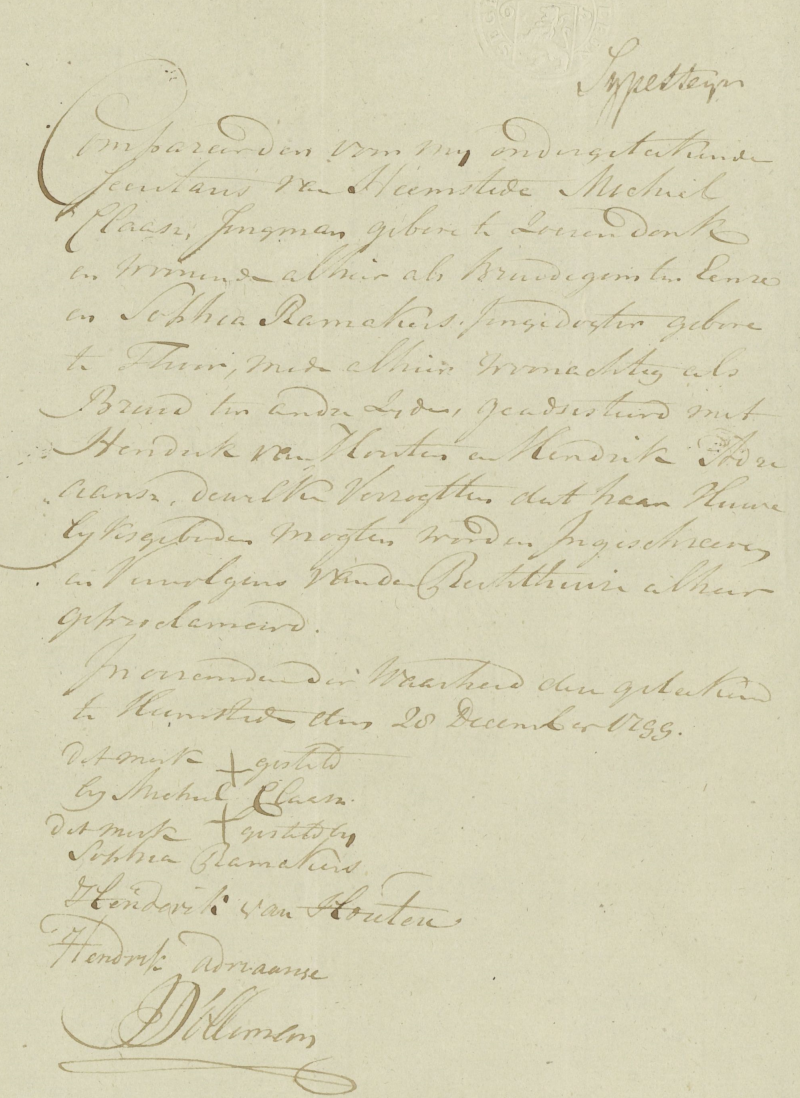 Sypesteyn
Compareerden voor my ondergeteekende
Secretaris van Heemstede Michiel
Claasz, Jongman gebore te Loerendonk
en woonende alhier als Bruidegom ter Eenre
en Sophia Ramakers Jongedogter gebore
te Thuir, mede alhier woonachtig als
Bruid ter andre Zyde, geadsisteerd met
Hendrik van Houten en Hendrik Adri
aansz, dewelke Verzogten dat haar Huwe
lyksgeboden mogten worden Ingeschreeven
en Vervolgens van den Rechthuize alhier
geproclameerd.
In oirconden der Waarheid deze geteekend
te Heemstede den 28 December 1799.
dit merk + gesteld
by Michiel Claasz.
dit merk + gesteld by
Sophia Ramakers
Henderik van Houten
Hendrik adriaanse
Dolleman